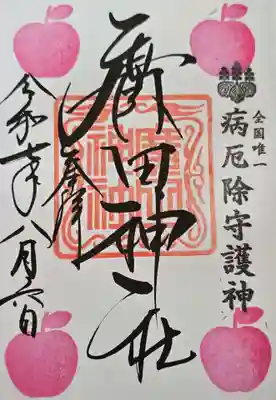 全国唯一
病厄除守護神
廣田神社
奉拝
令和七年八月六日